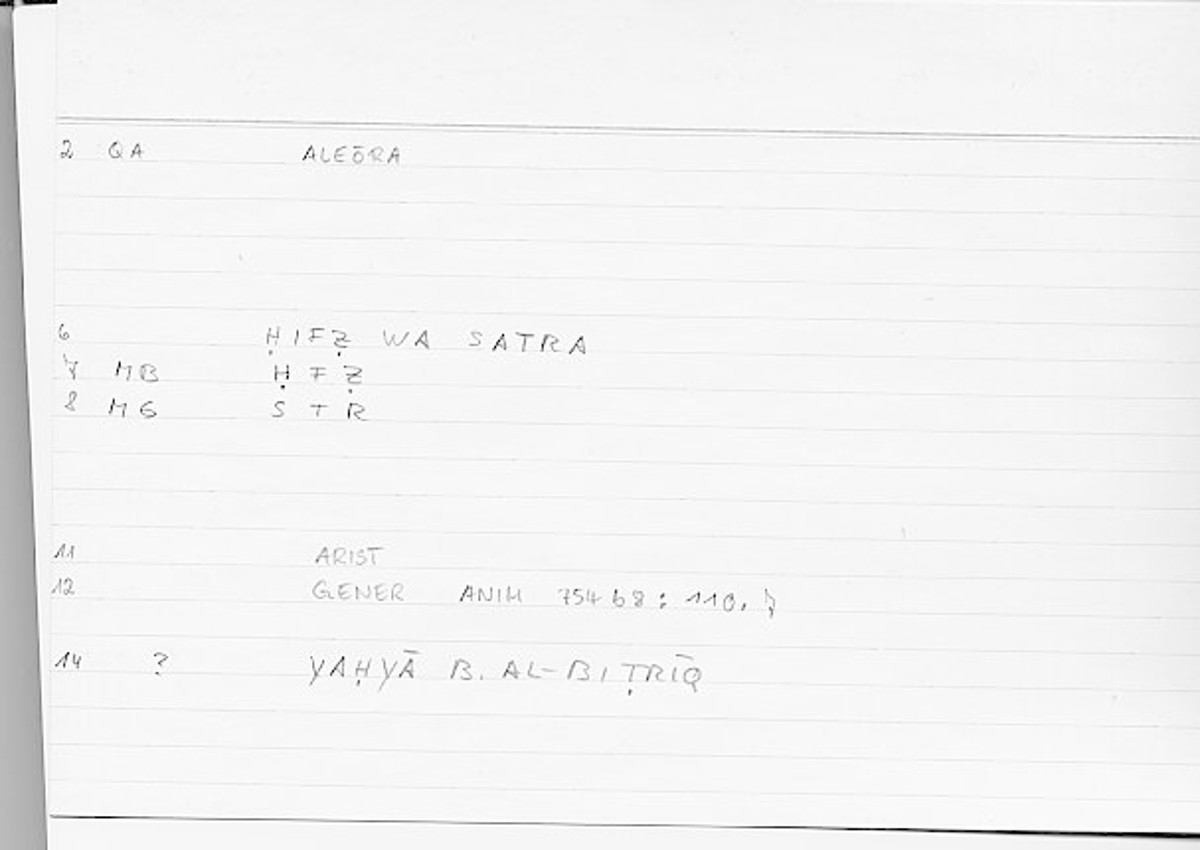 2 QA ALEŌRA
6 ḤIFẒ WA SATRA
7 MB Ḥ F Ẓ
8 MG S T R
11 ARIST
12 GENER ANIM 754 b 8 : 110, 7
14 ? YAḤYĀ B. AL-BIṬRĪQ